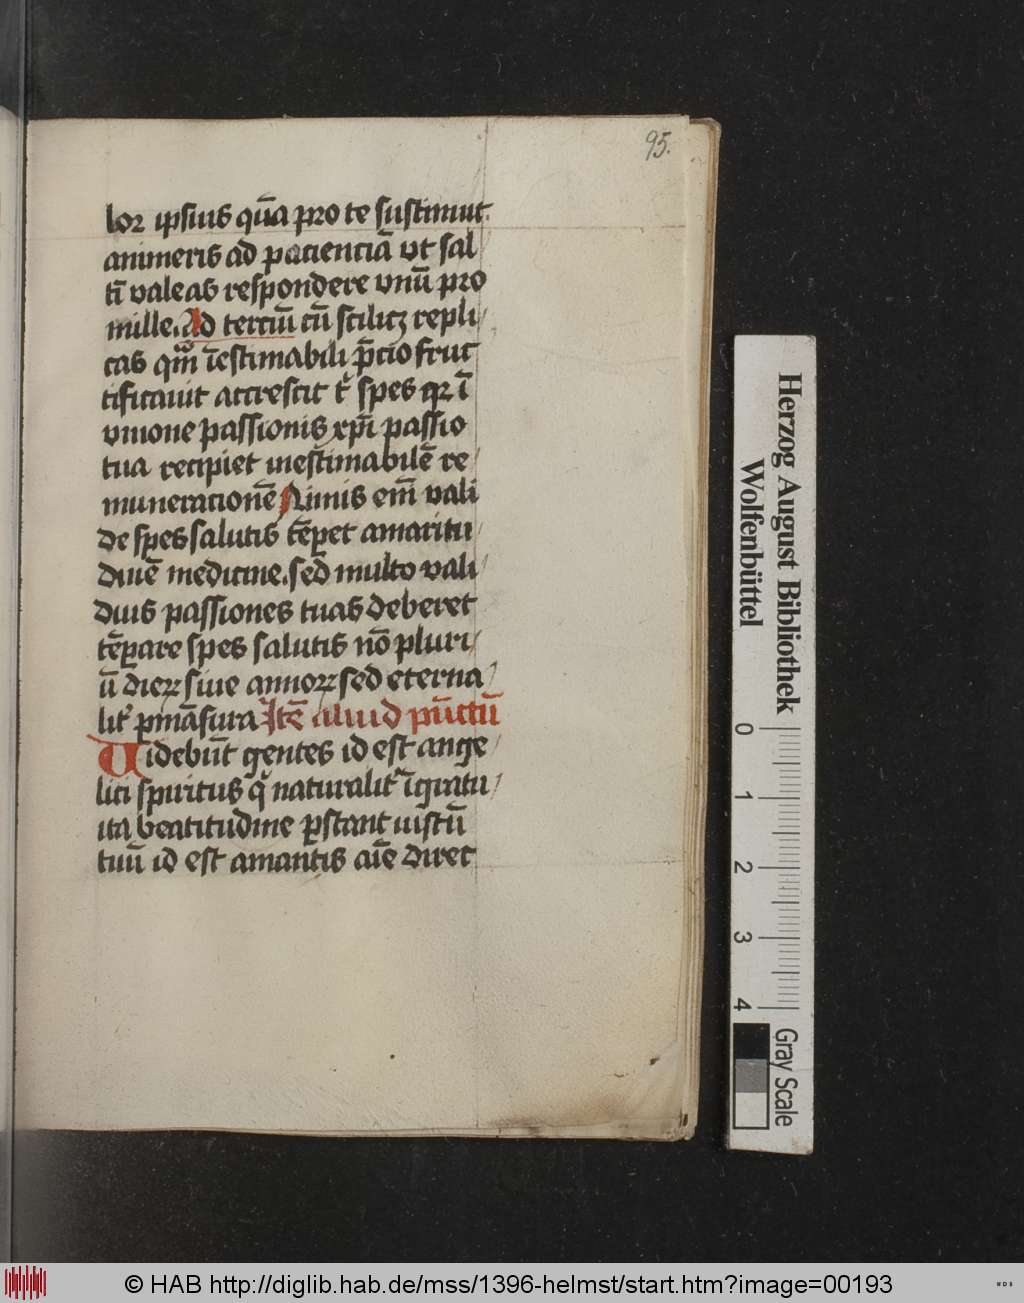 95.
lor ipsius qua̅ pro te sustinuit
animeris ad pacienciā vt sal
ti̅ valeas respondere vnū pro
mille. Ad terciū cū scilicꝫ repli
cas qm̅ īestimabili p̅cio fruc
tificauit accrescit t̉ spes qꝛ ī
vnione passionis xp̅i passio
tua recipiet inestimabilē re
muneracionē Nimis em̅ vali
de spes salutis te̅ꝑet amaritu
dinē medicine. sed multo vali
dius passiones tuas deberet
te̅ꝑare spes salutis nō pluri
ū dieꝝ siue annoꝝ sed eterna
lit̉ ꝑmāsura Itē aliud pu̅ctū
Videbūt gentes id est ange
lici spiritus q̉ naturalit̉ īgratu
ita beatitudine ꝑstant iustū
tuū id est amantis aīe diret
Herzog August Bibliothek
Wolfenbüttel
0 1 2 3 4
Gray Scale
© HAB http://diglib.hab.de/mss/1396-helmst/start.htm?image=00193
WDB